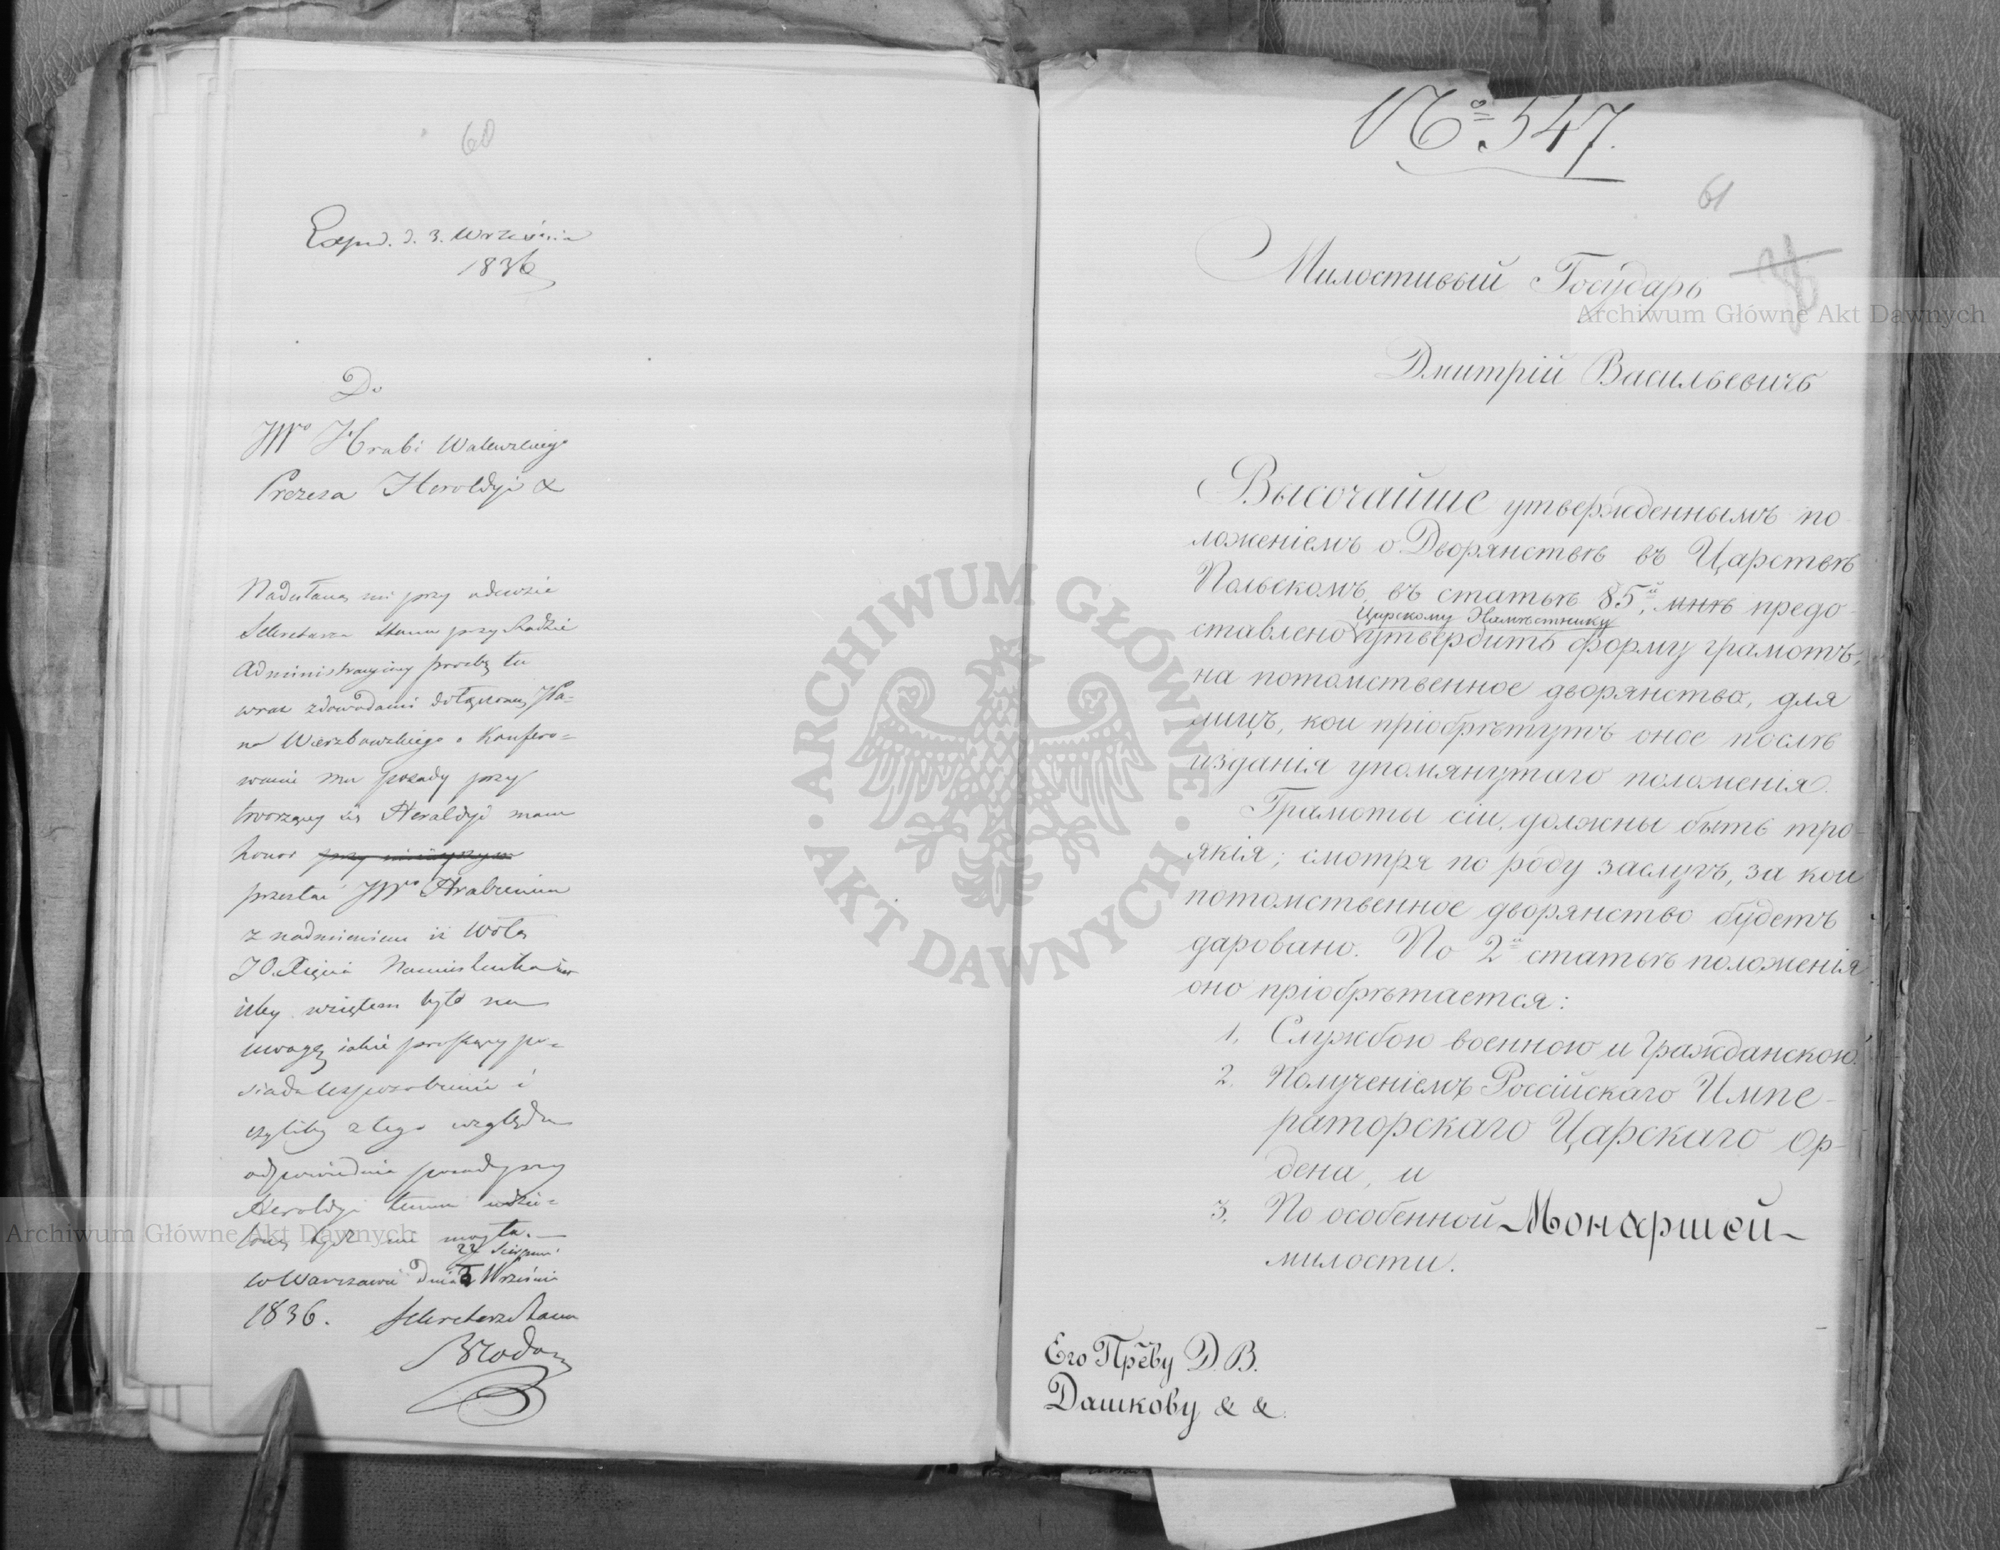 60
Exped. d. 3. Września
1836
Do
JW° Hrabi Walewskiego
Prezesa Heroldyi &
Nadesłaną mi przy odezwie
Sekretarza Stanu przy Radzie
Administracyjney prozbę tu
wraz z dowodami dołączoną Pa-
na Wierzbowskiego o konfero-
wanie mu posady przy
tworzącey się Heroldyi mam
honor
przesłać JW° Hrabiemu
z nadmieniem iż Wolą
JO. Xięcia Namiestnika
iżby wzięłem było na
uwagę iakie proszący po-
siada usposobienie i
czyliby z tego względu
odpowiednia posada przy
Heroldyi temu udzie-
loną być nie mogła.
22 Sierpnia
w Warszawie dnia 3 Września
1836. Sekretarz Stanu
№ 547.
61
Милостивый Государь
Дмитрій Васильевичъ
Высочайше утвержденнымъ по-
ложеніемъ о Дворянствѣ въ Царствѣ
Польскомъ, въ статьѣ 85й, мнѣ предо-
Царскому Намѣстнику
ставлено утвердить форму грамотъ,
на потомственное дворянство, для
лицъ, кои пріобрѣтутъ оное послѣ
изданія упомянутаго положенія.
Грамоты сіи, должны быть тро-
якія; смотря по роду заслугъ, за кои
потомственное дворянство будетъ
даровано. По 2й статьѣ положенія
оно пріобрѣтается:
1. Службою военною и гражданскою.
2. Полученіемъ Россійскаго Импе-
раторскаго Царскаго ор-
дена, и
3. По особенной Монаршей
милости.
Его Прев̃ву Д. В.
Дашкову & &.
ARCHIWUM GŁÓWNE AKT DAWNYCH
Archiwum Główne Akt Dawnych
Archiwum Główne Akt Dawnych